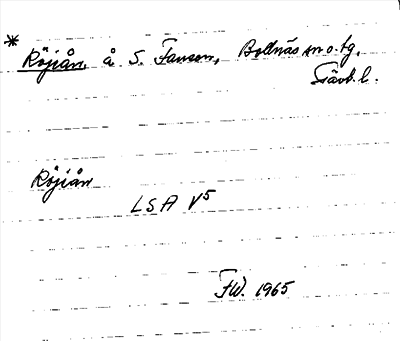 * Röjiån, å S. Fansen, Bollnäs sn o. tg,
Gävb. l.
Röjiån
LSA V5
FW. 1965